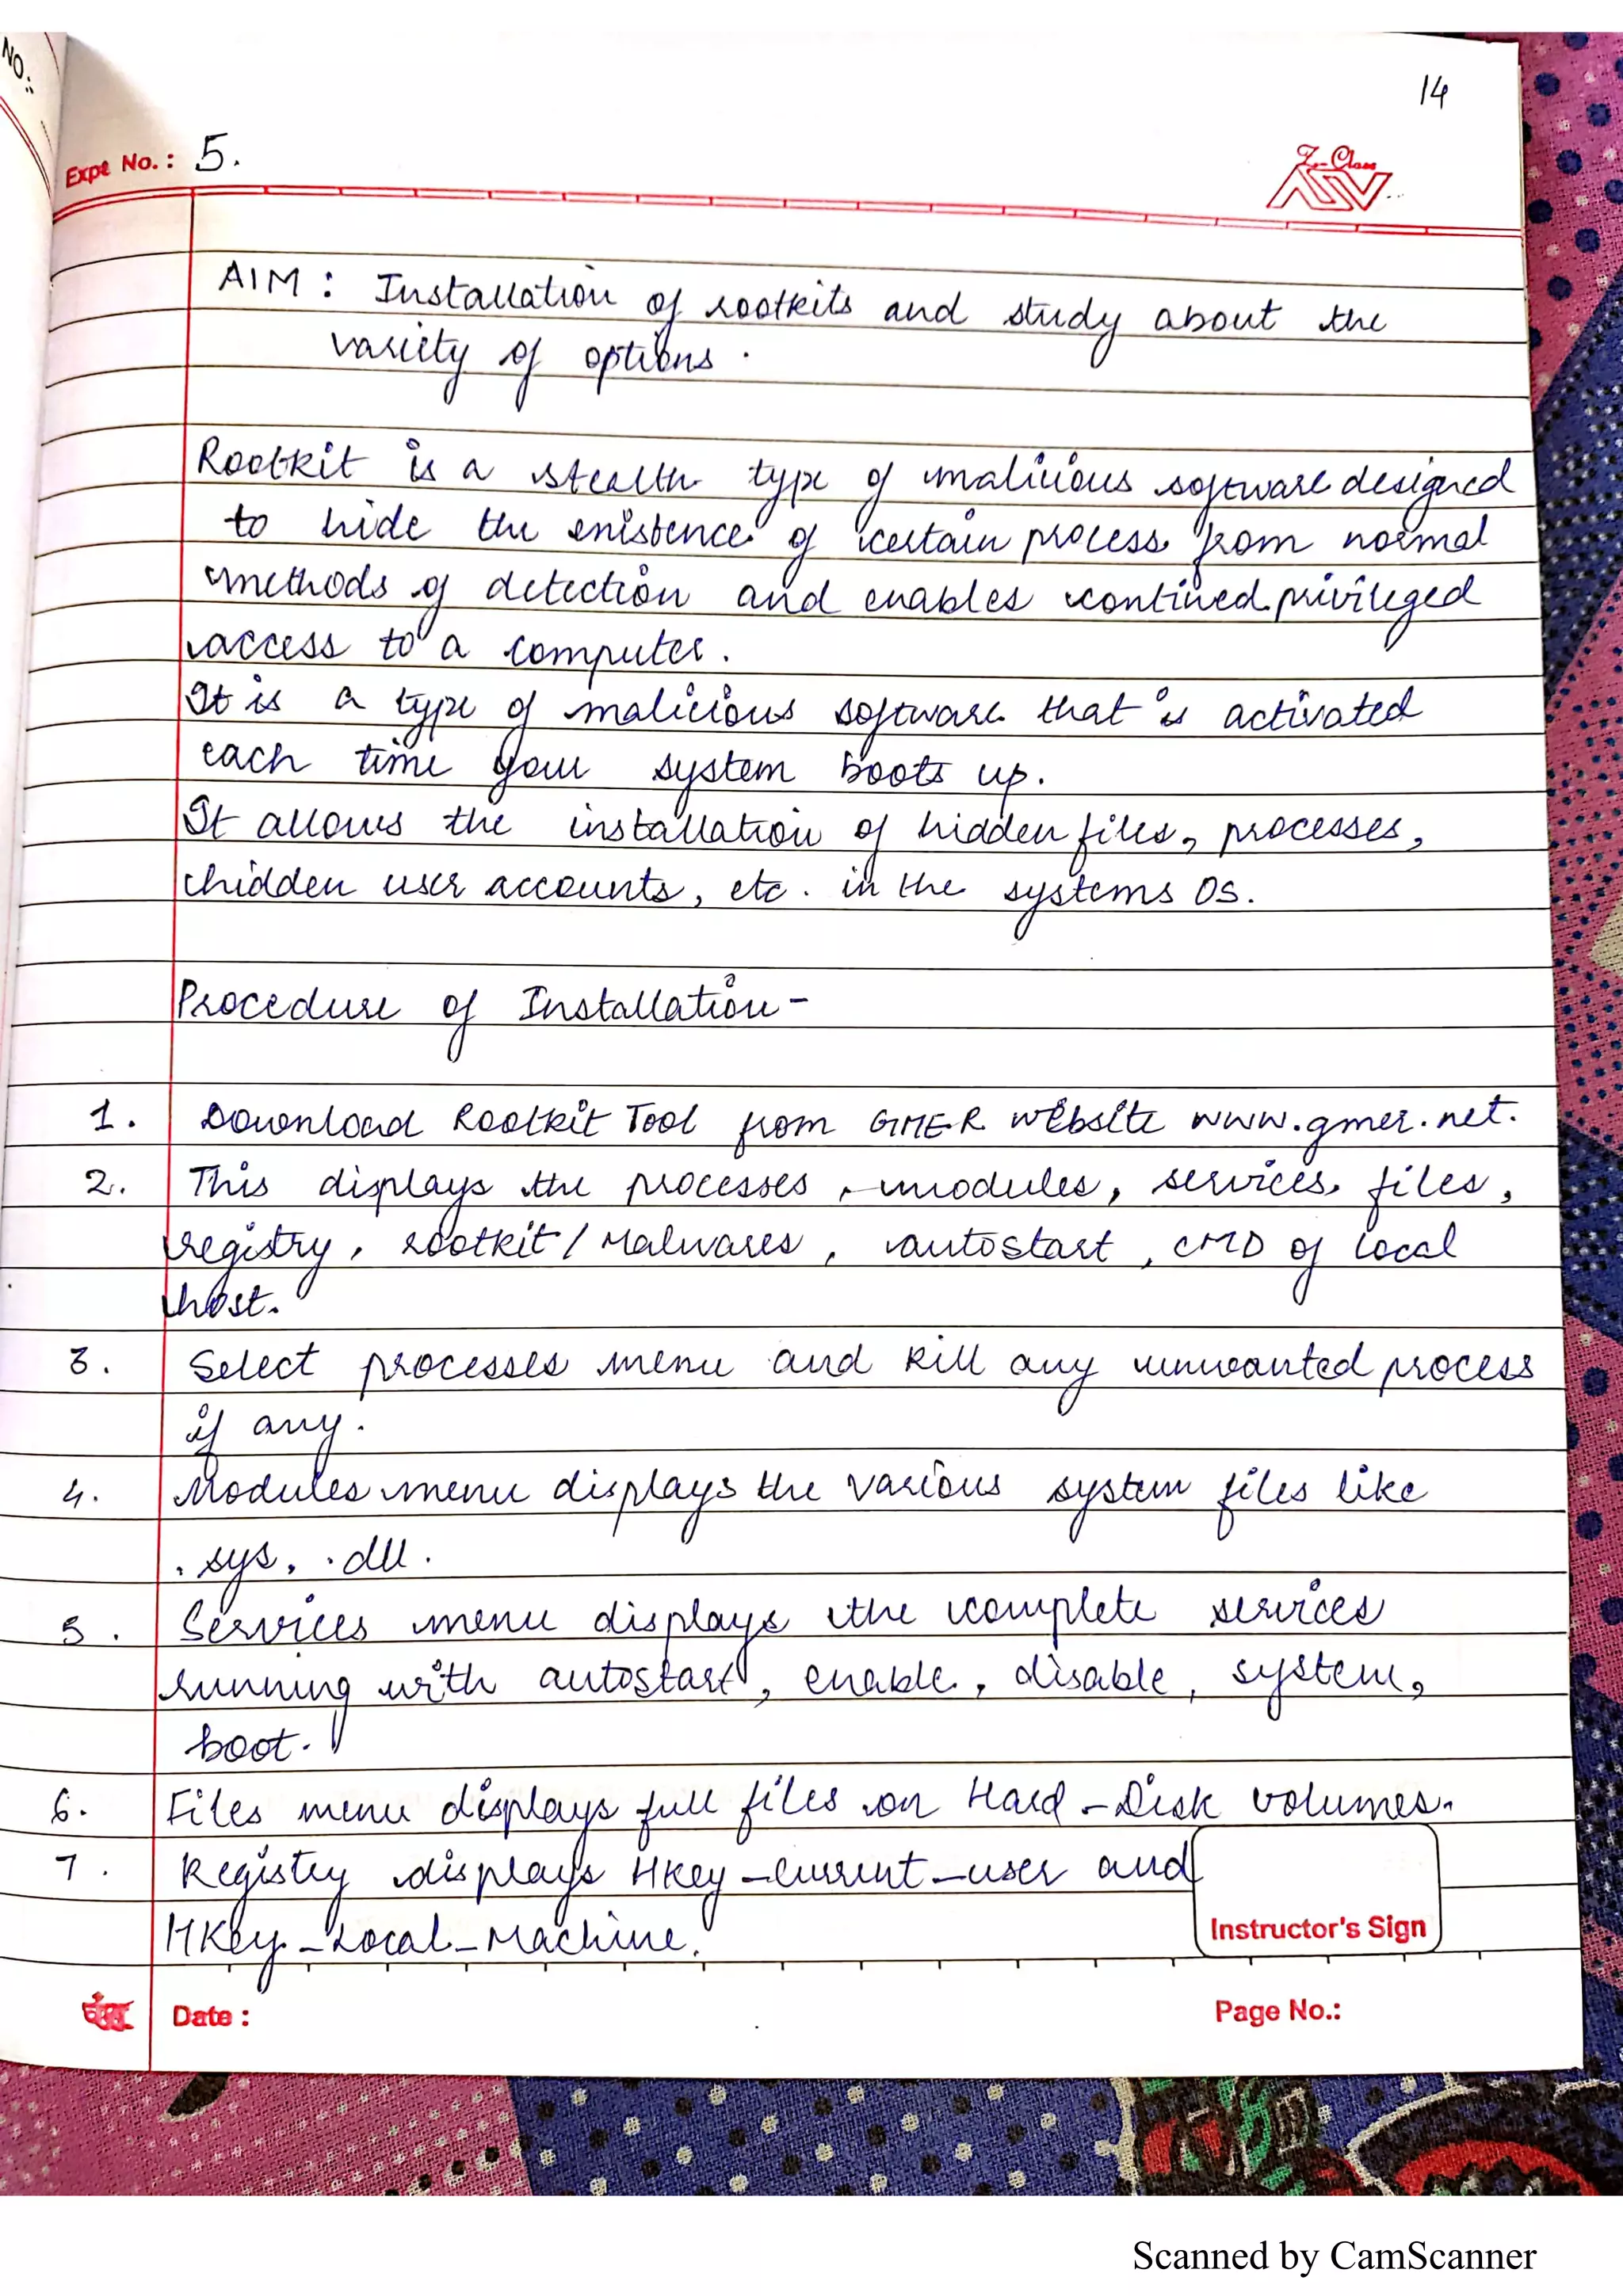 NO.:
14
Expt No.: 5.
Z-Class
AIM : Installation of rootkits and study about the
variety of options.
Rootkit is a stealth type of malicious software designed
to hide the existence of certain process from normal
methods of detection and enables contined privileged
access to a computer.
It is a type of malicious software that is activated
each time your system boots up.
It allows the installation of hidden files, processes,
hidden user accounts, etc. in the systems OS.
Procedure of Installation-
1. Download Rootkit Tool from GMER website www.gmer.net.
2. This displays the processes, modules, services, files,
registry, rootkit/Malwares, autostart, CMD of local
host.
3. Select processes menu and kill any unwanted process
if any.
4. Modules menu displays the various system files like
.sys, .dll.
5. Services menu displays the complete services
running with autostart, enable, disable, system,
boot.
6. Files menu displays full files on Hard-Disk volumes.
7. Registry displays Hkey_Current_user and
HKey_Local_Machine.
Instructor's Sign
Date :
Page No.:
Scanned by CamScanner